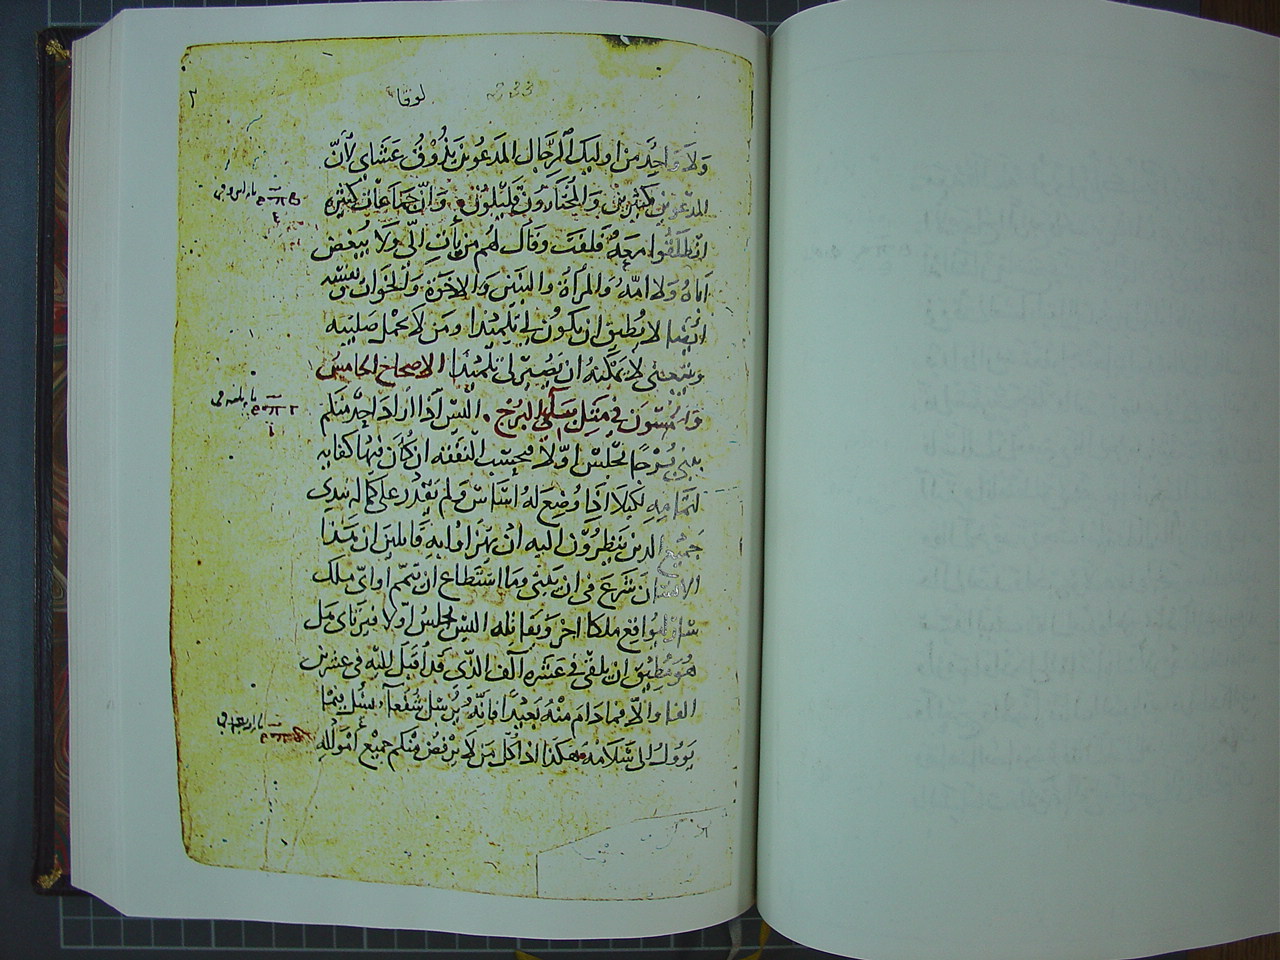 لوقا
ولا واحد من اوليك الرجال المدعوين يذوق عشاى لأن
المدعوين كثيرين والمختارون قليلون. وان جماعات كثيره
انطلقوا معه فلفت وقال لهم من يأت الى ولا يبغض
اباه ولا امه والمرأة والبنين والاخوة والخوات ونفسه
ايضا لا يطيق ان يكون لي تلميذا ومن لا يحمل صليبه
ويتبعنى لا يمكنه ان يصير لى تلميذا الاصحاح الخامس
والخمسون في مثل البرج. اليس اذا اراد احد منكم
يبنى برجا يجلس اولا فيحسب النفقه ان كان فيها كفايه
لتمامه لكيلا اذا وضع له اساس ولم يقدر على كماله يبتدى
جميع الذين ينظرون اليه ان يهزاوا به قايلين ان هذا
الانسان شرع فى ان يبنى وما استطاع ان يتمم او اى ملك
ملكا اخر ويقاتله اليس يجلس اولا فيرتاى هل
هو مطيق ان يلقى في عشره الف الذى قد اقبل اليه فى عشرين
الفا والا فما دام منه بعيدا فانه يرسل شفعا يسئل فيما
يوول الى سلامه هكذا اذا كل من لا يرفض منكم جميع امواله